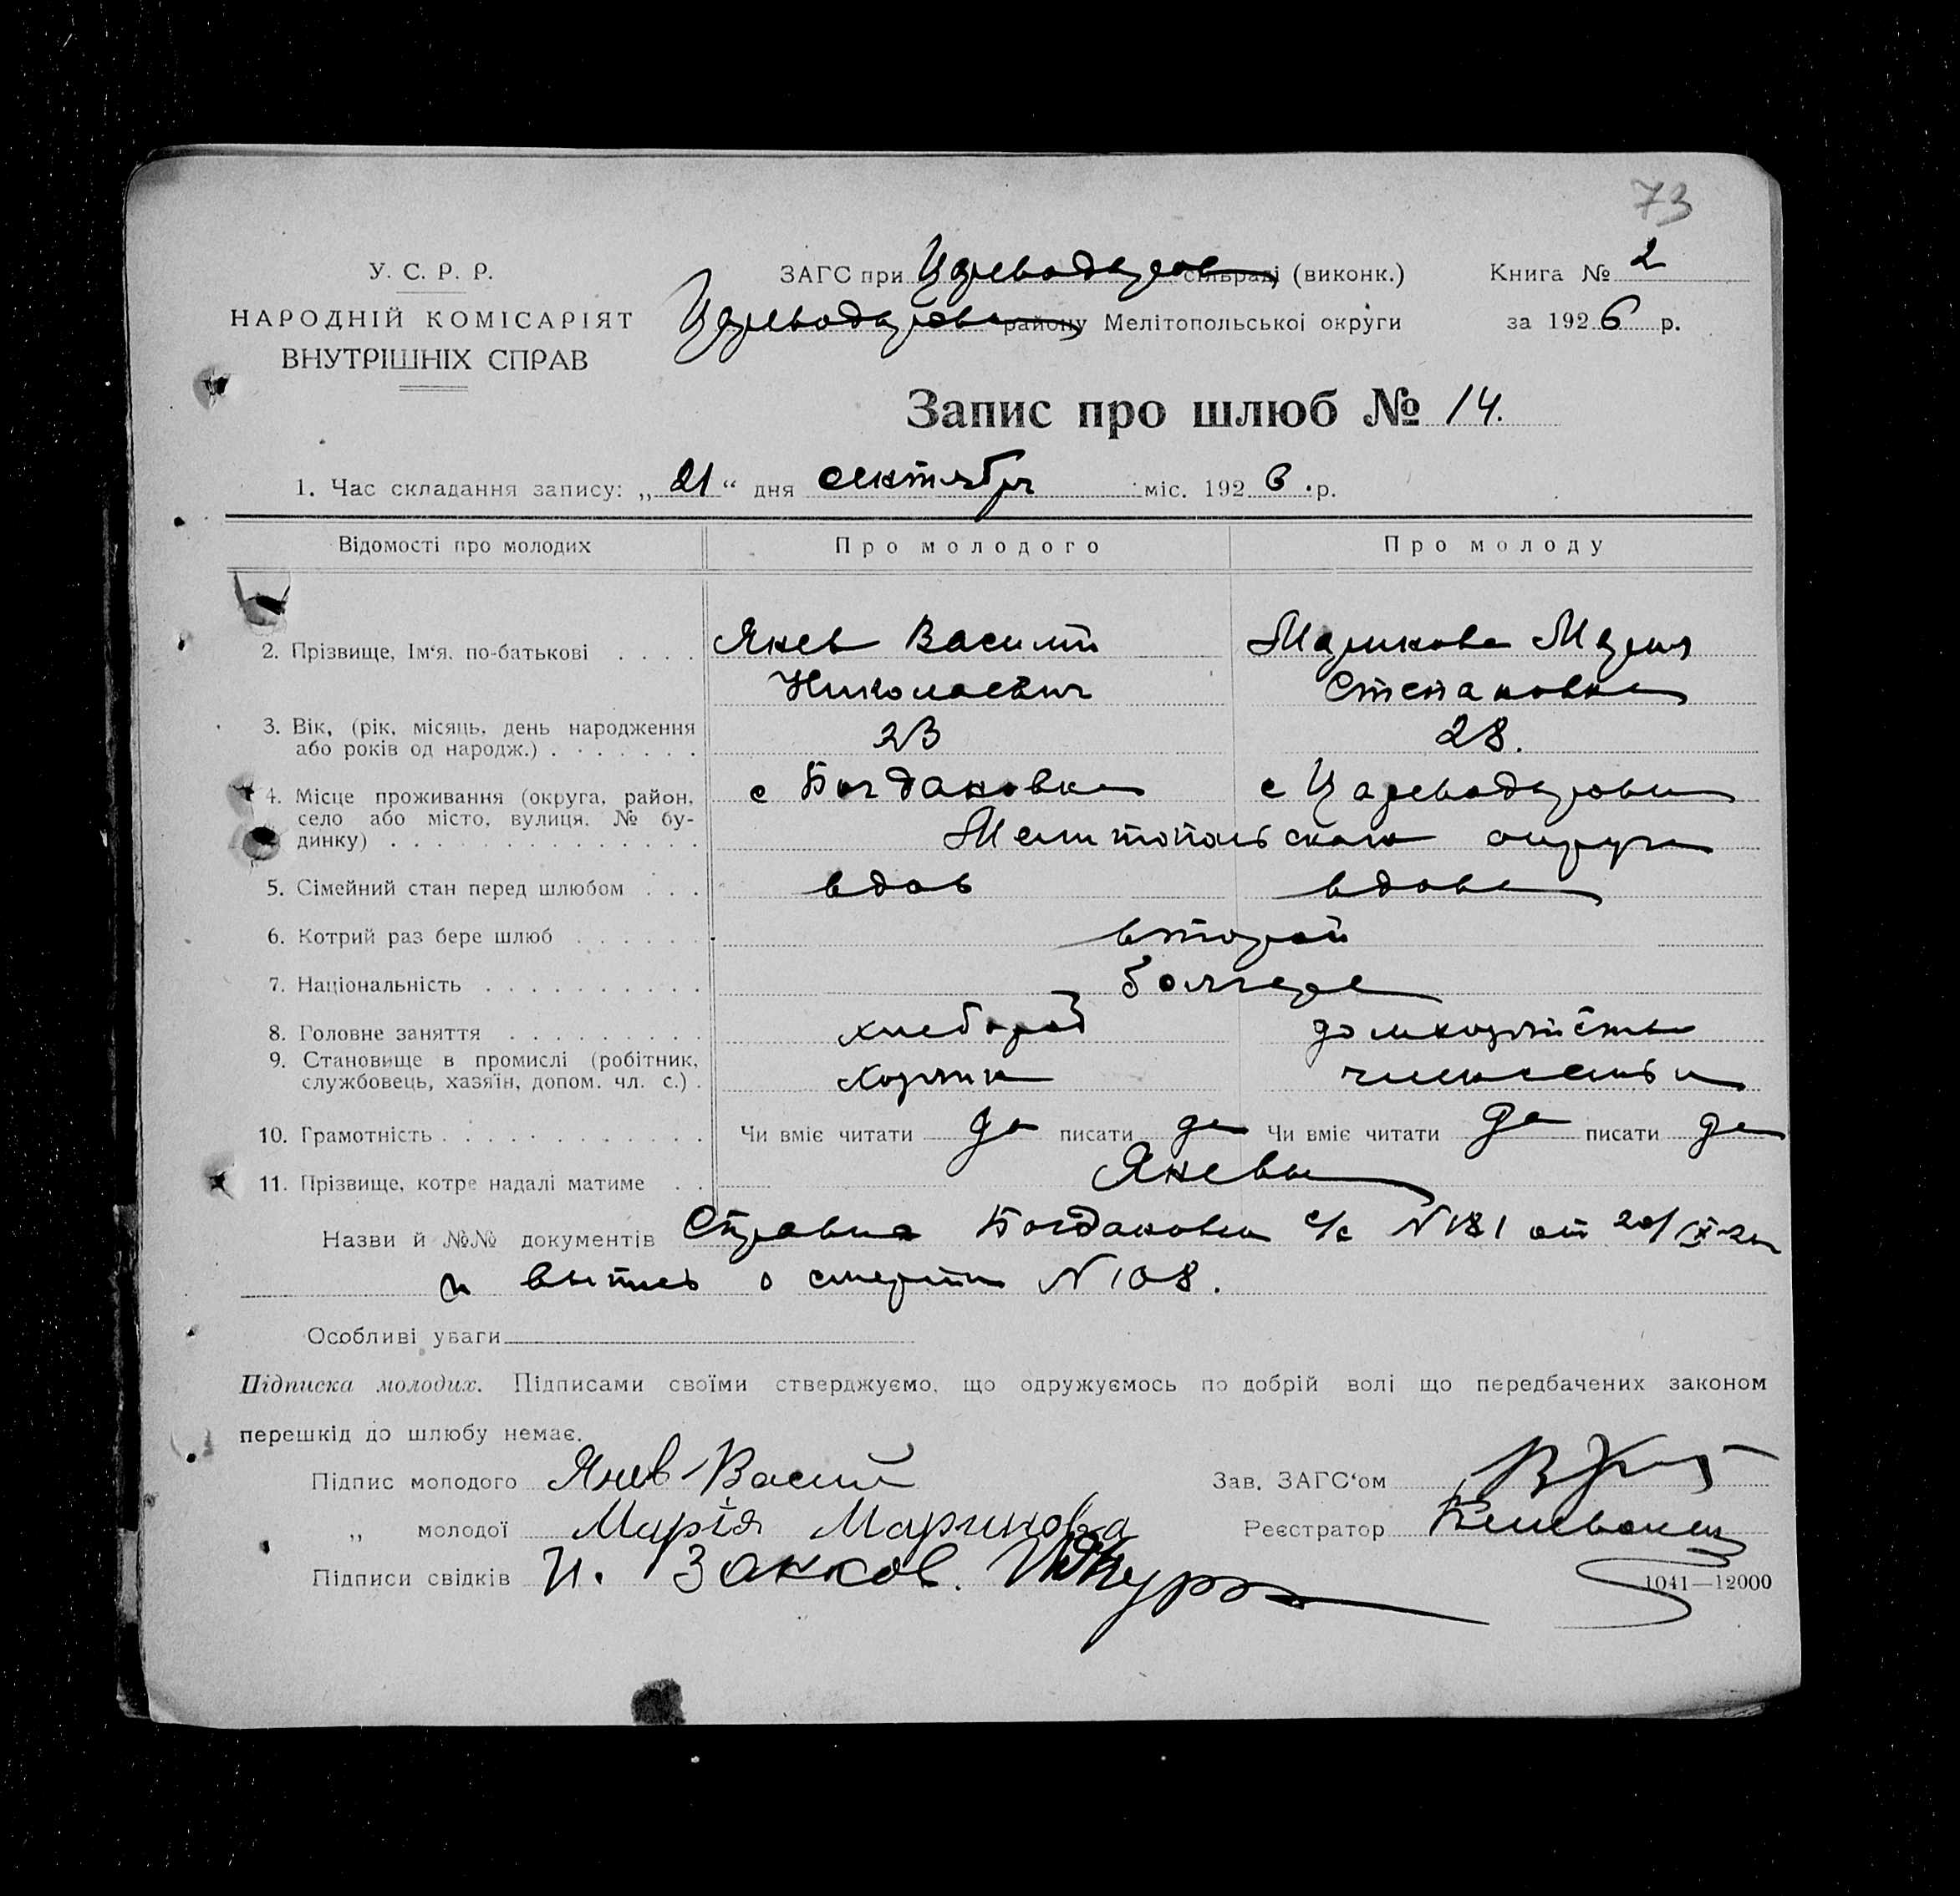 73
У. С. Р. Р.
НАРОДНІЙ КОМІСАРІЯТ
ВНУТРІШНІХ СПРАВ
ЗАГС при Цареводаров сільраді (виконк.)
Цареводаровс району Мелітопольської округи
Книга № 2
за 1926 р.
Запис про шлюб № 14.
1. Час складання запису: „21“ дня сентября міс. 1926 р.
Відомості про молодих Про молодого Про молоду
2. Прізвище, Ім‘я, по-батькові Янев Василий Маринова Мария
Николаевич Степановна
3. Вік, (рік, місяць, день народження
або років од народж.) 23 28.
4. Місце проживання (округа, район, с Богдановка с Цареводаровка
село або місто, вулиця, № бу-
динку) Мелитопольского округа
5. Сімейний стан перед шлюбом вдов вдова
6. Котрий раз бере шлюб второй
7. Національність болгаре
8. Головне заняття хлебороб домхозяйства
9. Становище в промислі (робітник,
службовець, хазяїн, допом. чл. с.) хозяин член семьи
10. Грамотність Чи вміє читати да писати да Чи вміє читати да писати да
11. Прізвище, котре надалі матиме Яневы
Назви й №№ документів Справка Богдановки с/с N 181 от 20/IX
и выпись о смерти N 108.
Особливі уваги
Підписка молодих. Підписами своїми стверджуємо, що одружуємось по добрій волі що передбачених законом
перешкід до шлюбу немає.
Підпис молодого Янев Васий Зав. ЗАГС‘ом
„ молодої Марія Маринова Реєстратор
Підписи свідків И. Занков.
1041—12000